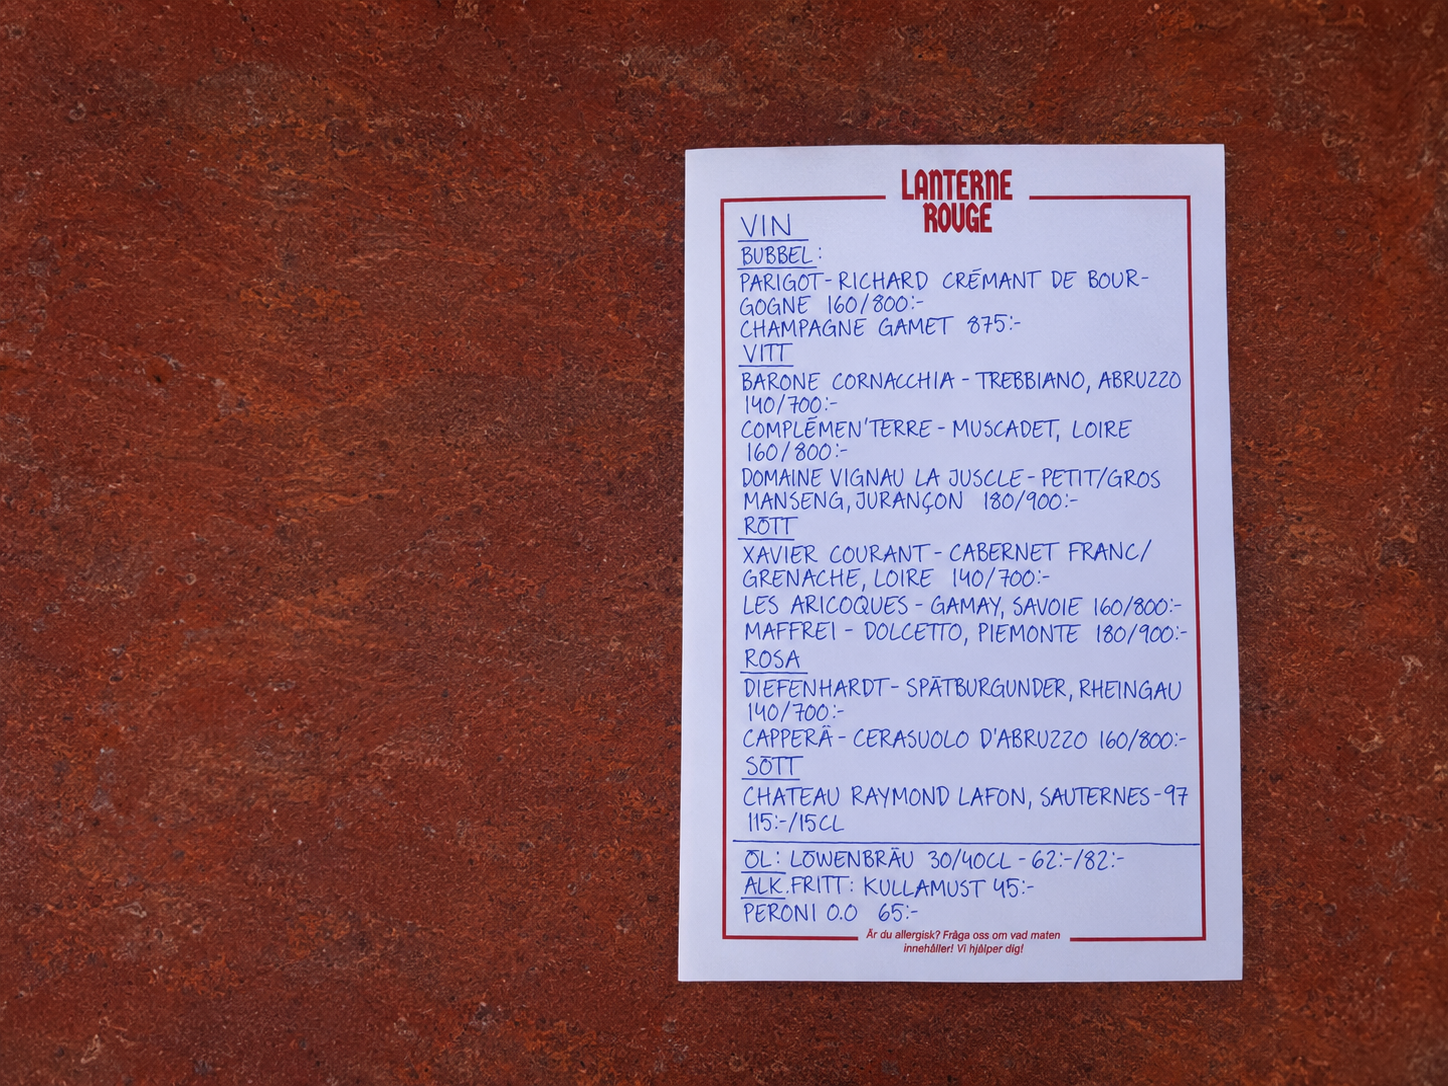 LANTERNE
ROUGE
VIN
BUBBEL:
PARIGOT-RICHARD CRÉMANT DE BOUR-
GOGNE 160/800:-
CHAMPAGNE GAMET 875:-
VITT
BARONE CORNACCHIA - TREBBIANO, ABRUZZO
140/700:-
COMPLÉMEN'TERRE - MUSCADET, LOIRE
160/800:-
DOMAINE VIGNAU LA JUSCLE - PETIT/GROS
MANSENG, JURANÇON 180/900:-
RÖTT
XAVIER COURANT - CABERNET FRANC/
GRENACHE, LOIRE 140/700:-
LES ARICOQUES - GAMAY, SAVOIE 160/800:-
MAFFREI - DOLCETTO, PIEMONTE 180/900:-
ROSA
DIEFENHARDT - SPÄTBURGUNDER, RHEINGAU
140/700:-
CAPPERÄ - CERASUOLO D'ABRUZZO 160/800:-
SÖTT
CHATEAU RAYMOND LAFON, SAUTERNES -97
115:-/15CL
ÖL: LÖWENBRÄU 30/40CL - 62:-/82:-
ALK.FRITT: KULLAMUST 45:-
PERONI 0.0 65:-
Är du allergisk? Fråga oss om vad maten
innehåller! Vi hjälper dig!